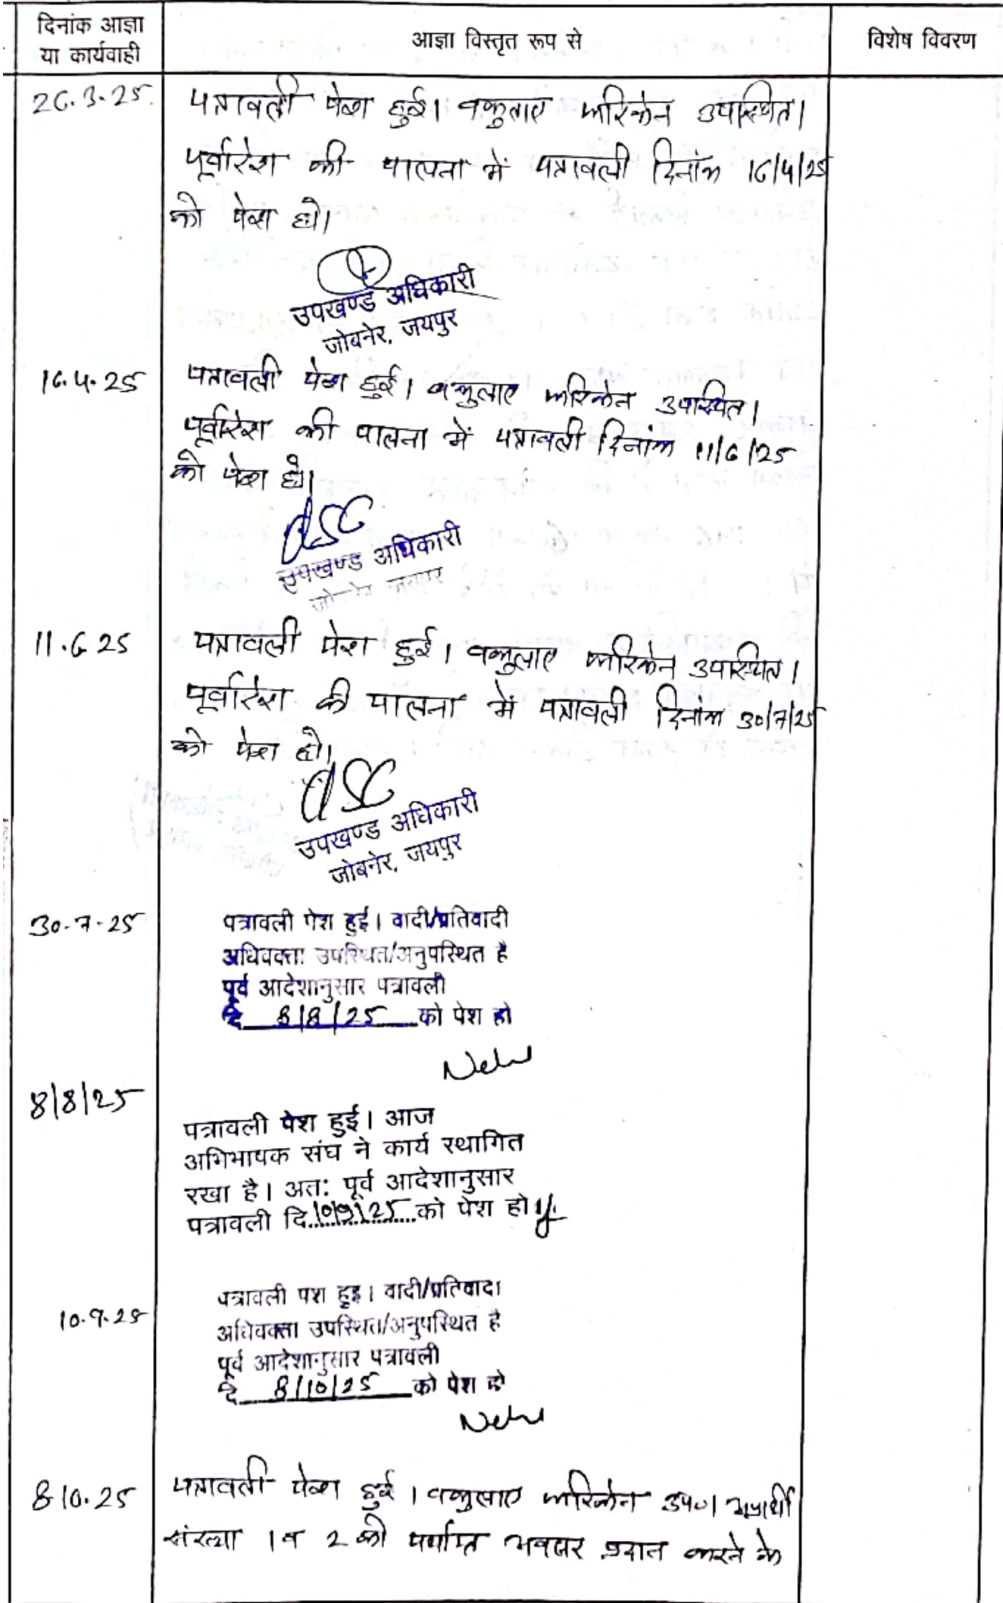 दिनांक आज्ञा
या कार्यवाही
आज्ञा विस्तृत रूप से
विशेष विवरण
26.3.25.
पत्रावली पेश हुई। वकुलाए फरिकेन उपस्थित।
पूर्वादेश की पालना में पत्रावली दिनांक 16/4/25
को पेश हो।
उपखण्ड अधिकारी
जोबनेर, जयपुर
16.4.25
पत्रावली पेश हुई। वकुलाए फरिकेन उपस्थित।
पूर्वादेश की पालना में पत्रावली दिनांक 11/6/25
को पेश हो।
उपखण्ड अधिकारी
जोबनेर जयपुर
11.6.25
पत्रावली पेश हुई। वकुलाए फरिकेन उपस्थित।
पूर्वादेश की पालना में पत्रावली दिनांक 30/7/25
को पेश हो।
उपखण्ड अधिकारी
जोबनेर, जयपुर
30.7.25
पत्रावली पेश हुई। वादी/प्रतिवादी
अधिवक्ता उपस्थित/अनुपस्थित है
पूर्व आदेशानुसार पत्रावली
दि 8/8/25 को पेश हो
8/8/25
पत्रावली पेश हुई। आज
अभिभाषक संघ ने कार्य स्थगित
रखा है। अतः पूर्व आदेशानुसार
पत्रावली दि.10/9/25...को पेश हो
10.9.25
पत्रावली पेश हुइ। वादी/प्रतिवादी
अधिवक्ता उपस्थित/अनुपस्थित है
पूर्व आदेशानुसार पत्रावली
दि 8/10/25 को पेश हो
8.10.25
पत्रावली पेश हुई। वकुलाए फरिकेन उप०। अप्रार्थी
संख्या 1 व 2 को पर्याप्त अवसर प्रदान करने के